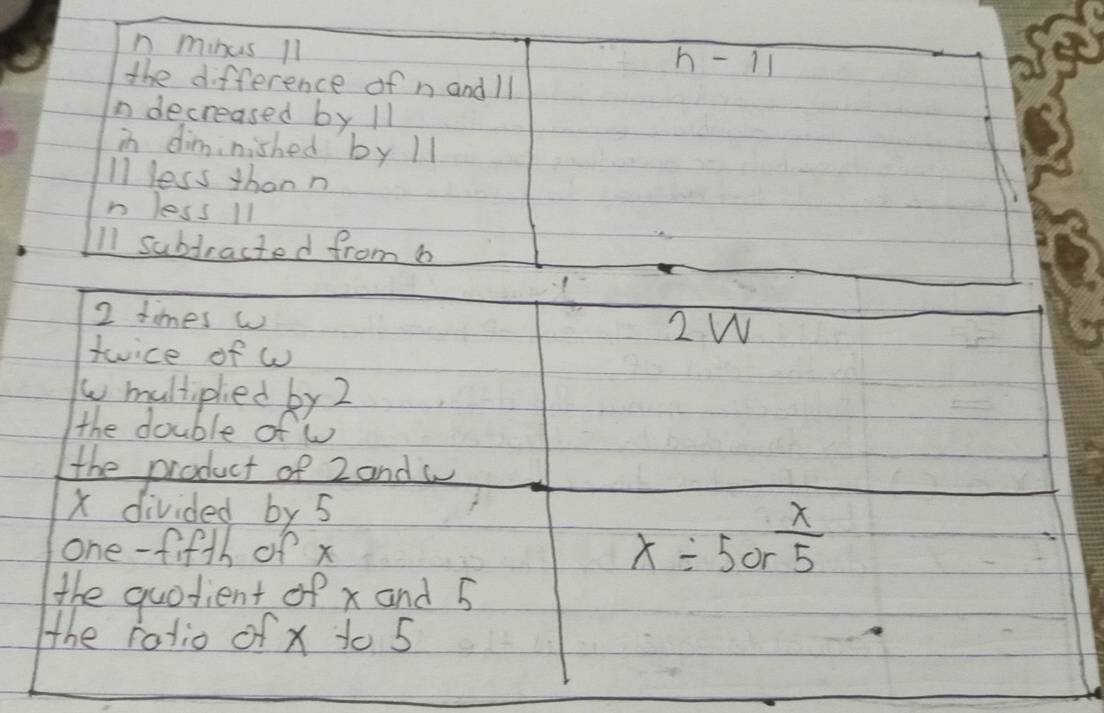 n minus 11
n - 11
the difference of n and 11
n decreased by 11
n diminished by 11
11 less than n
n less 11
11 subtracted from n
2 times w
2W
twice of w
w multiplied by 2
the double of w
the product of 2 and w
x divided by 5
one-fifth of x
x ÷ 5 or x/5
the quotient of x and 5
the ratio of x to 5